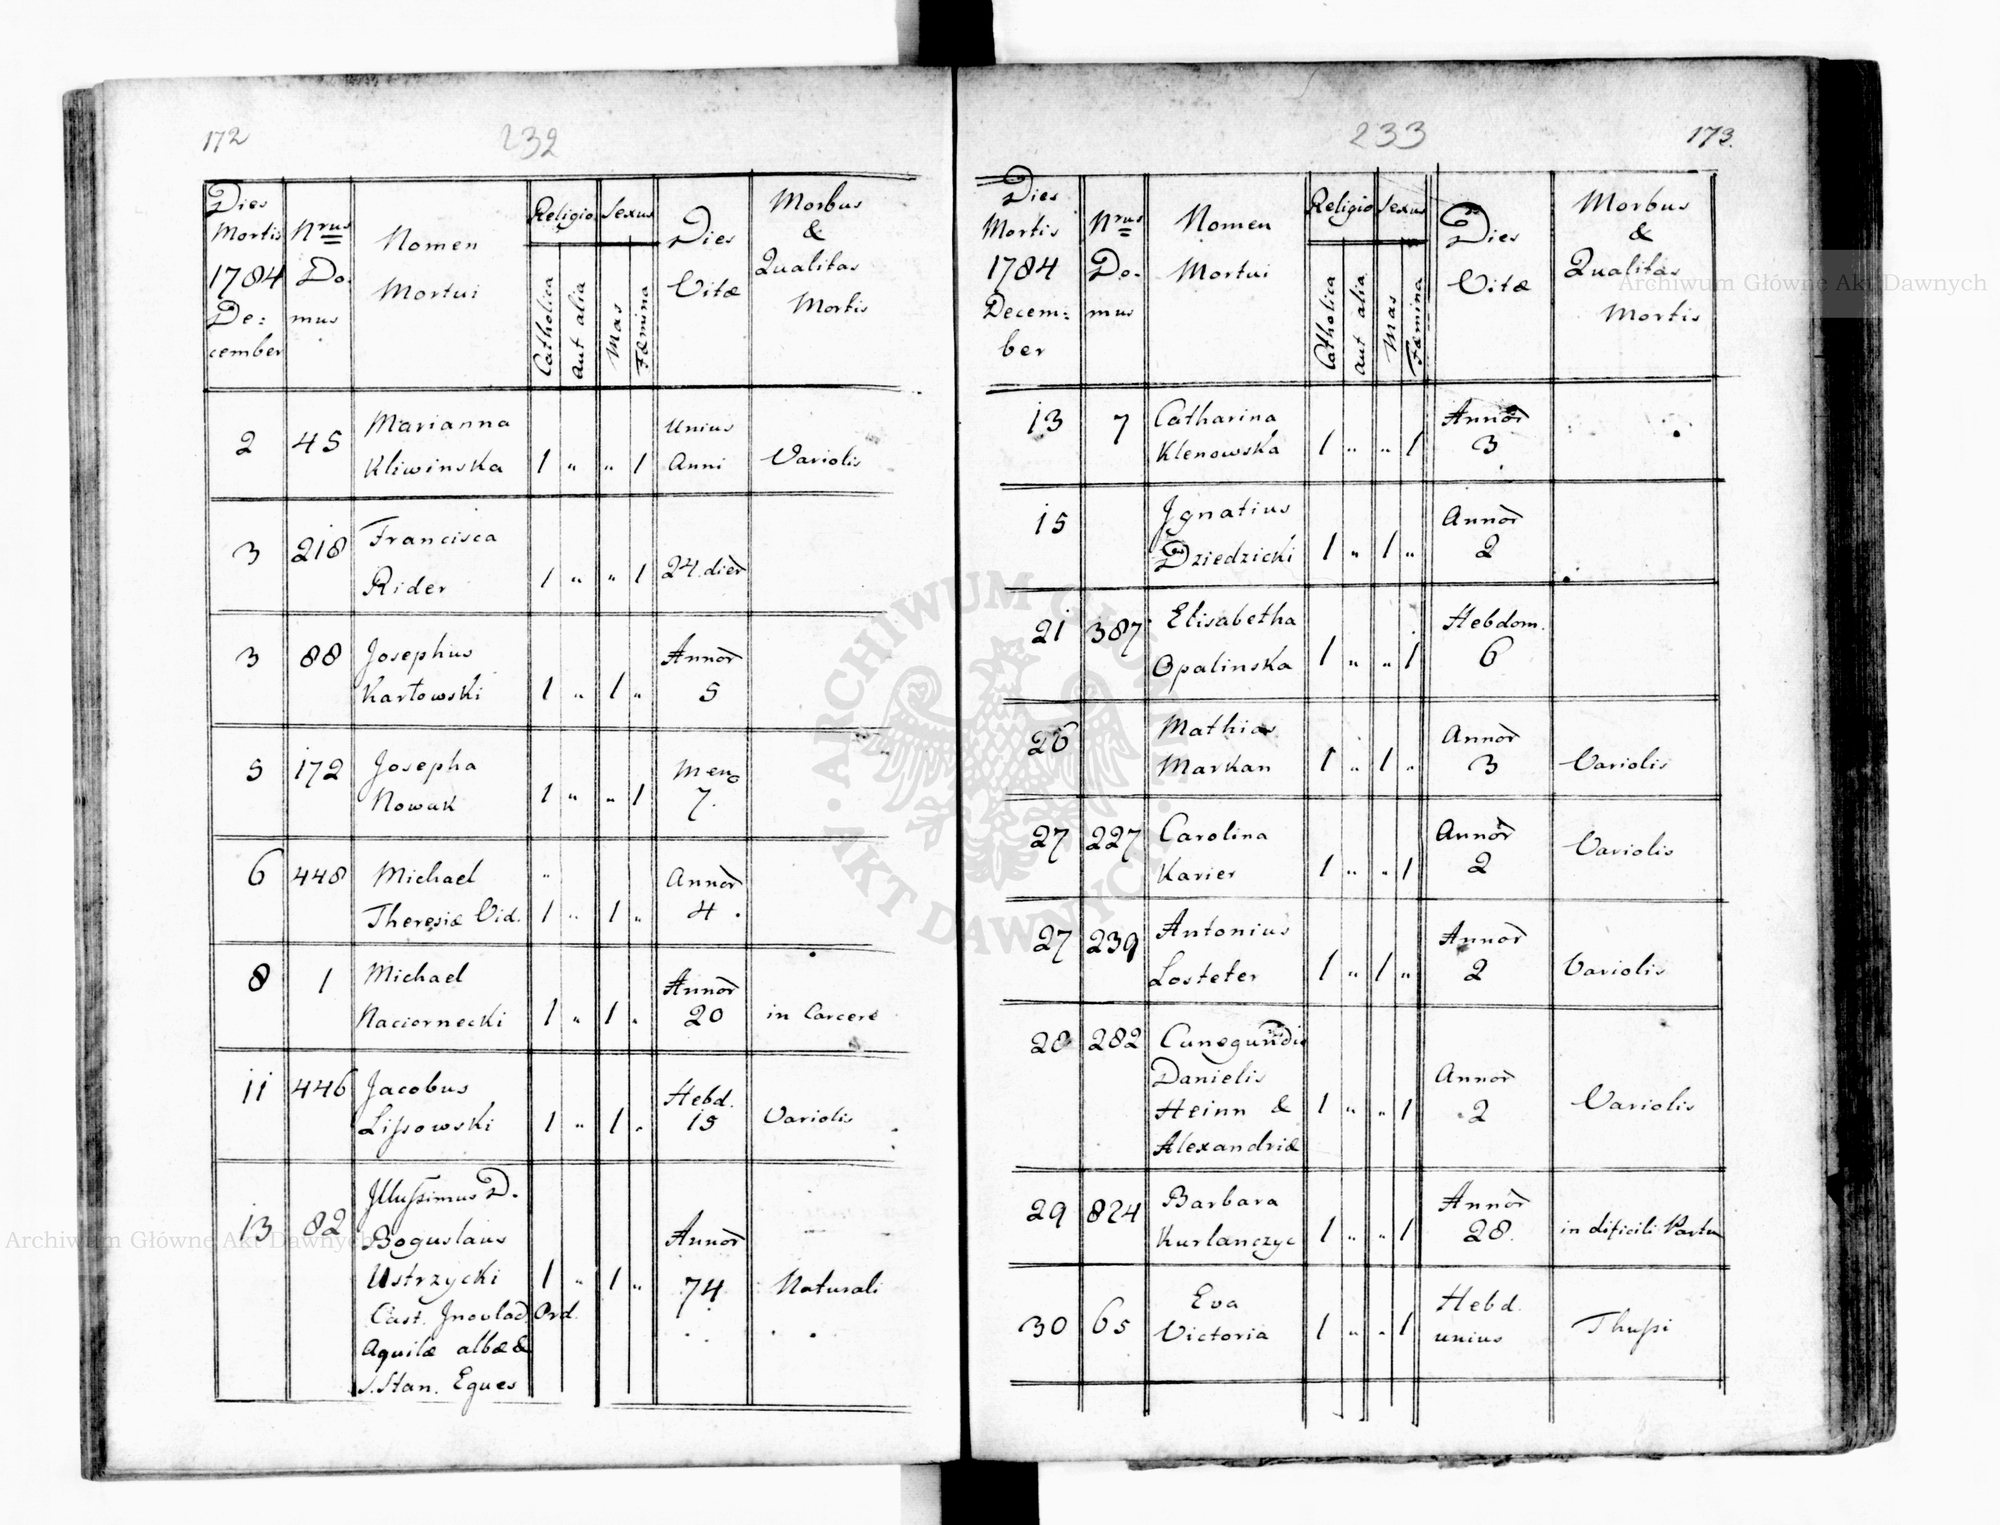 172
232
Dies Mortis 1784 De: cember
Nrus Do. mus
Nomen Mortui
Religio
Catholica
aut alia
Sexus
Mas
Fæmina
Dies Vitæ
Morbus & Qualitas Mortis
2 45 Marianna Unius
Kliwinska 1 „ „ 1 Anni Variolis
3 218 Francisca
Rider 1 „ „ 1 24. dier
3 88 Josephus Annor
Karłowski 1 „ 1 „ 5
5 172 Josepha Men
Nowak 1 „ „ 1 7.
6 448 Michael „ Annor
Theresiæ Vid. 1 „ 1 „ 4.
8 1 Michael Annor
Naciornecki 1 „ 1 „ 20 in Carcere
11 446 Jacobus Hebd.
Lissowski 1 „ 1 „ 15 Variolis
Illussimus D.
13 82 Boguslaus Annor
Ustrzycki 1 „ 1 „ 74 Naturali
Cast. Jnovlad. Ord.
Aquilæ albæ &
S. Stan. Eques
233
173.
Dies Mortis 1784 Decem: ber
Nrus Do- mus
Nomen Mortui
Religio
Catholica
aut alia
Sexus
Mas
Fæmina
Dies Vitæ
Morbus & Qualitas Mortis
13 7 Catharina Annor
Klenowska 1 „ „ 1 3
15 Jgnatius Annor
Dziedzicki 1 „ 1 „ 2
21 387 Elisabetha Hebdom.
Opalinska 1 „ „ 1 6
26 Mathias Annor
Markan 1 „ 1 „ 3 Variolis
27 227 Carolina Annor
Karier 1 „ „ 1 2 Variolis
27 239 Antonius Annor
Losteter 1 „ 1 „ 2 Variolis
28 282 Cunegundis
Danielis Annor
Heinn & 1 „ „ 1 2 Variolis
Alexandriæ
29 824 Barbara Annor
Kurlanczyc 1 „ „ 1 28. in dificili Partu
30 65 Eva Hebd.
Victoria 1 „ „ 1 unius Thussi
Archiwum Główne Akt Dawnych
Archiwum Główne Akt Dawnych
ARCHIWUM GŁÓWNE AKT DAWNYCH